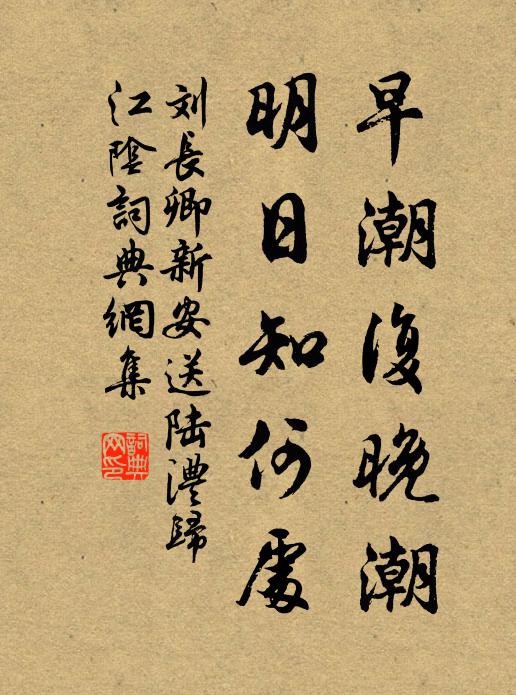 早潮復晚潮
明日知何處
刘長卿新安送陆澧歸
江陰詞典網集
詞典網印